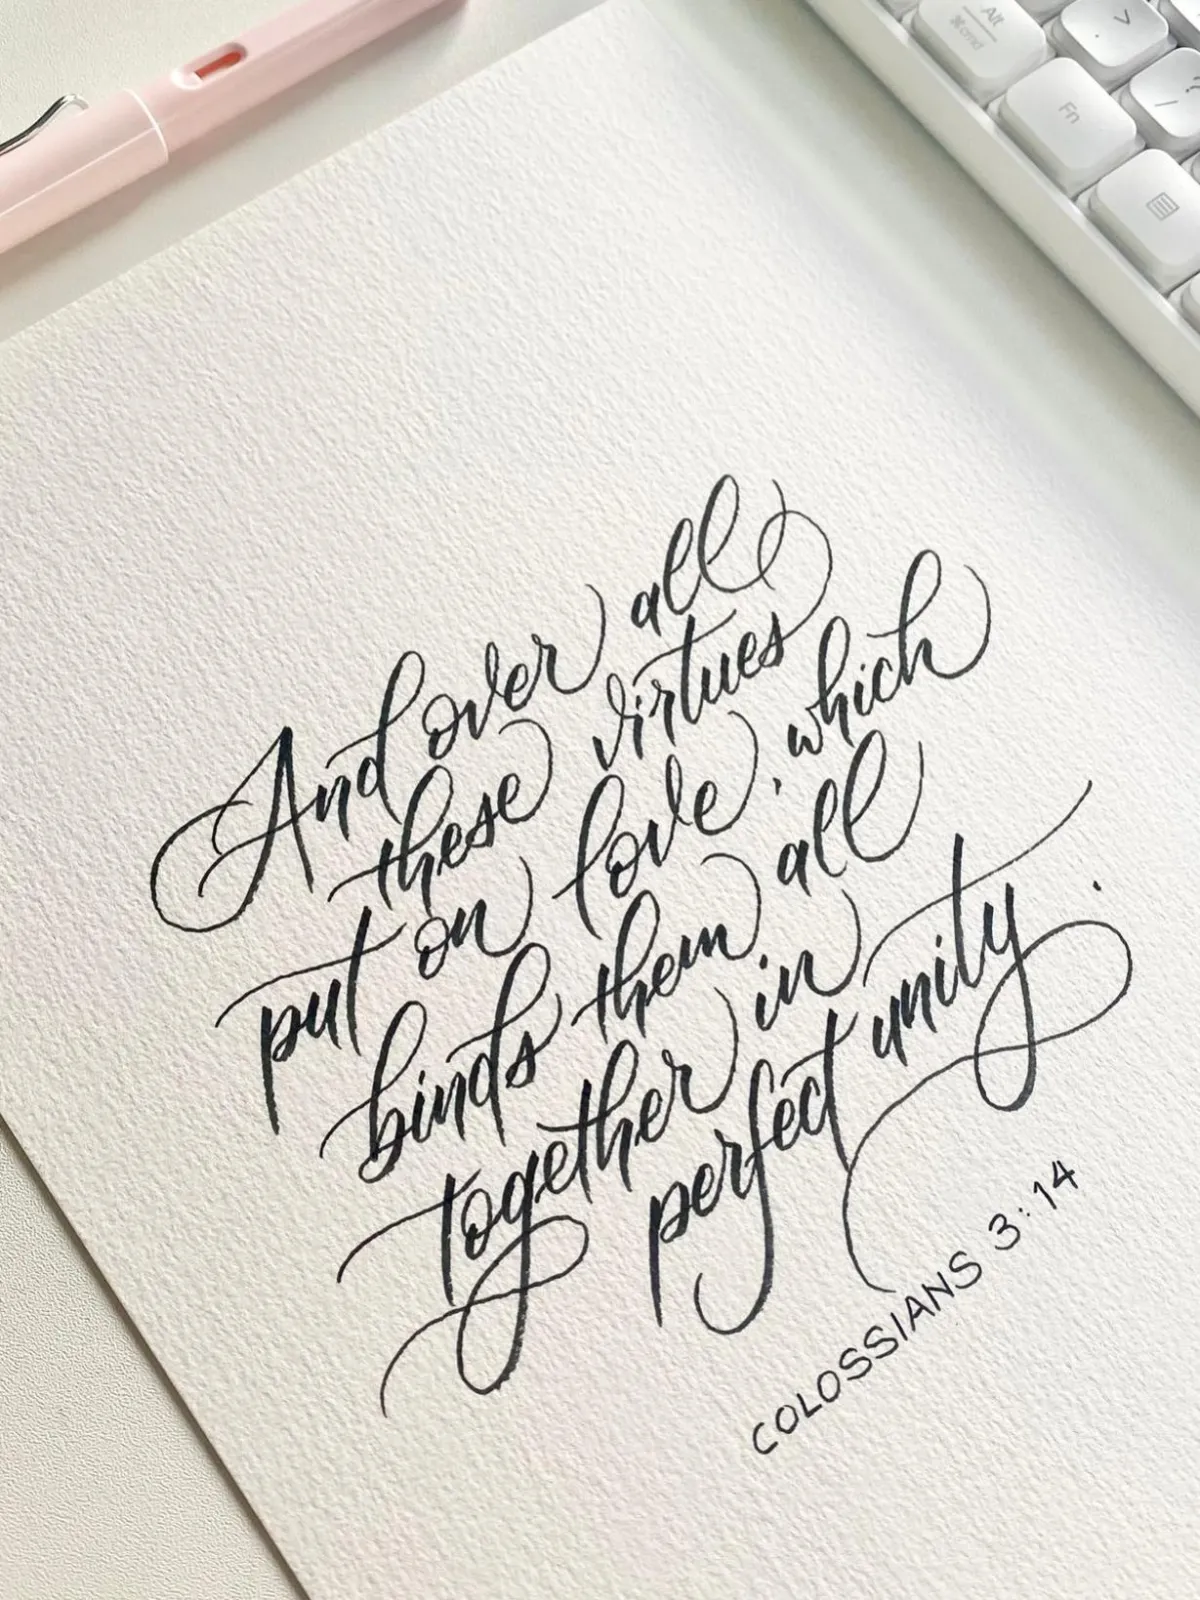 And over all
these virtues
put on love, which
binds them all
together in
perfect unity.
COLOSSIANS 3:14
Alt
⌘cmd
Fn